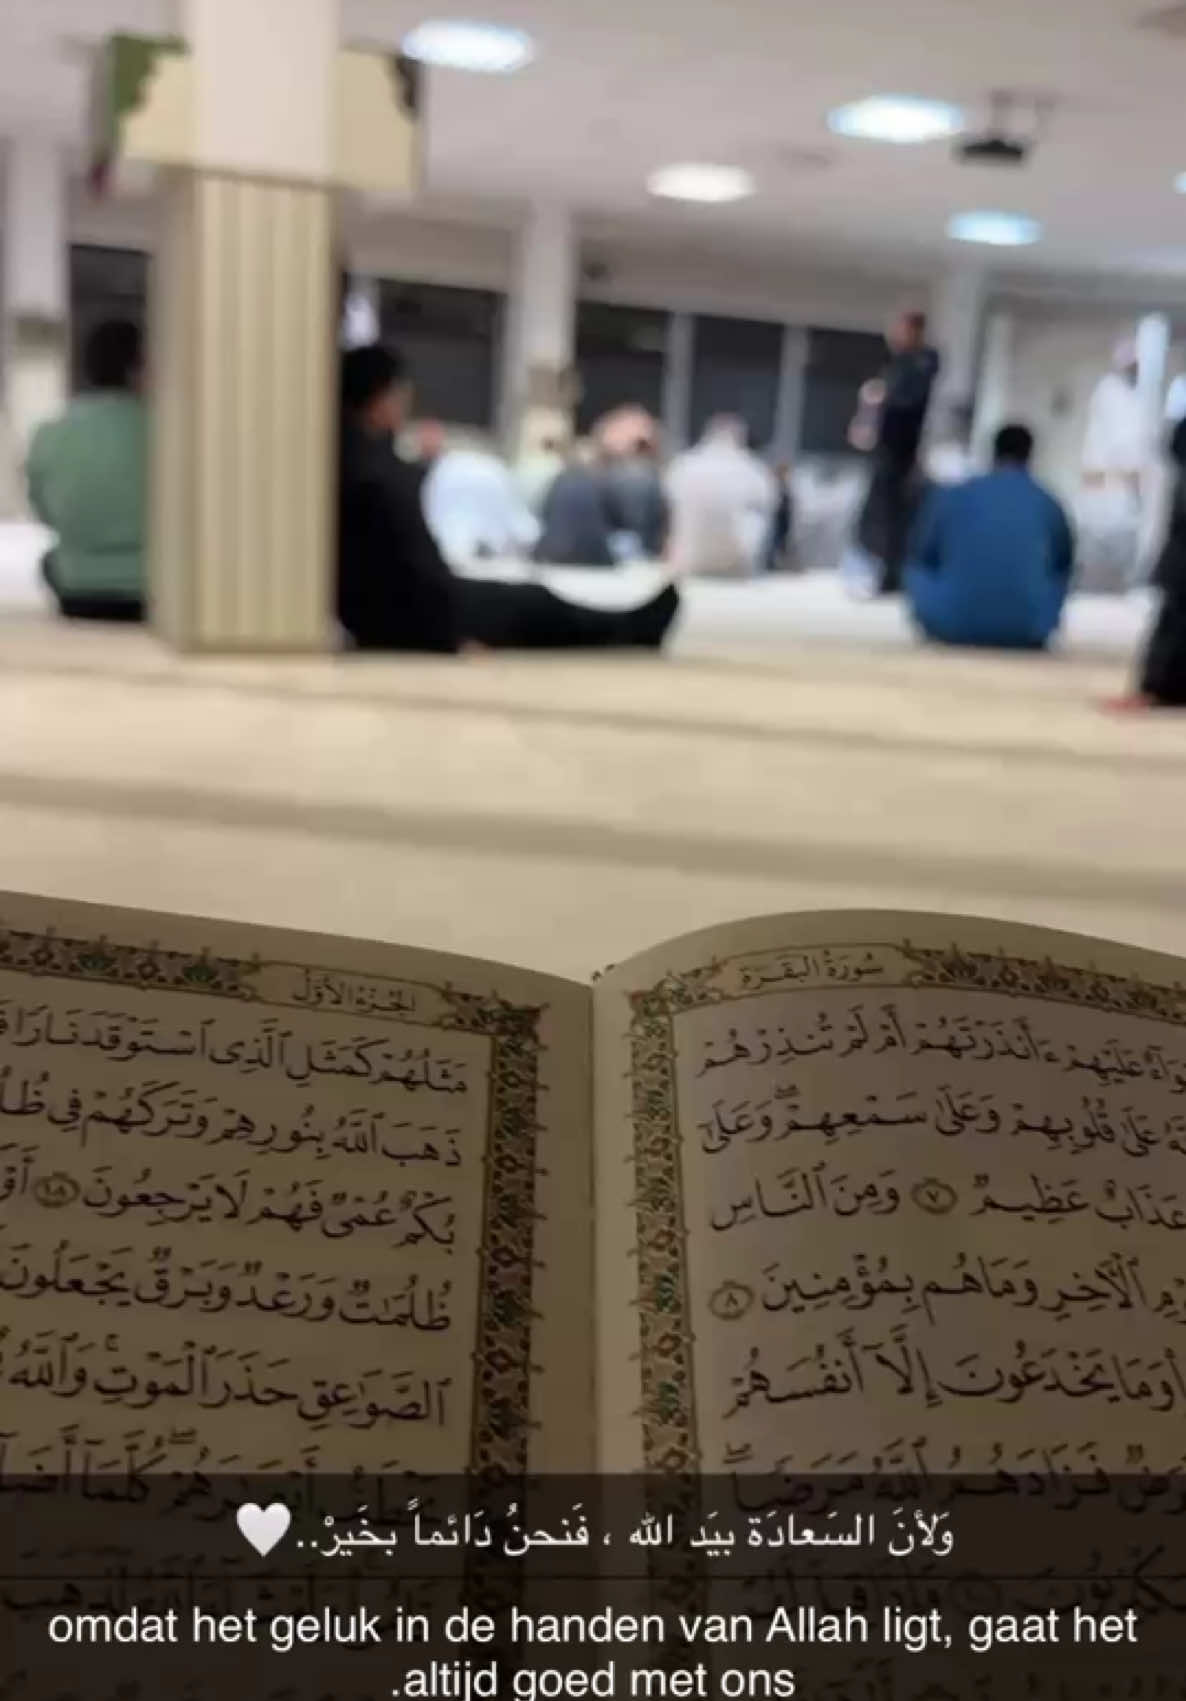 سُورَةُ البَقَرَةِ
عَلَيْهِمْ ءَأَنذَرْتَهُمْ أَمْ لَمْ تُنذِرْهُمْ
عَلَىٰ قُلُوبِهِمْ وَعَلَىٰ سَمْعِهِمْ ۖ وَعَلَىٰ
عَذَابٌ عَظِيمٌ ٧ وَمِنَ ٱلنَّاسِ
ٱلْآخِرِ وَمَا هُم بِمُؤْمِنِينَ ٨
وَمَا يَخْدَعُونَ إِلَّآ أَنفُسَهُمْ
فَزَادَهُمُ ٱللَّهُ مَرَضًا ۖ
الجُزْءُ الأَوَّلُ
مَثَلُهُمْ كَمَثَلِ ٱلَّذِى ٱسْتَوْقَدَ نَارًا
ذَهَبَ ٱللَّهُ بِنُورِهِمْ وَتَرَكَهُمْ فِى
بُكْمٌ عُمْىٌ فَهُمْ لَا يَرْجِعُونَ ١٨ أَوْ
ظُلُمَٰتٌ وَرَعْدٌ وَبَرْقٌ يَجْعَلُونَ
ٱلصَّوَٰعِقِ حَذَرَ ٱلْمَوْتِ ۚ وَٱللَّهُ
كُلَّمَآ
وَلأنَ السَعادَة بيَد الله ، فَنحنُ دَائماً بخَيرْ..🤍
omdat het geluk in de handen van Allah ligt, gaat het
.altijd goed met ons